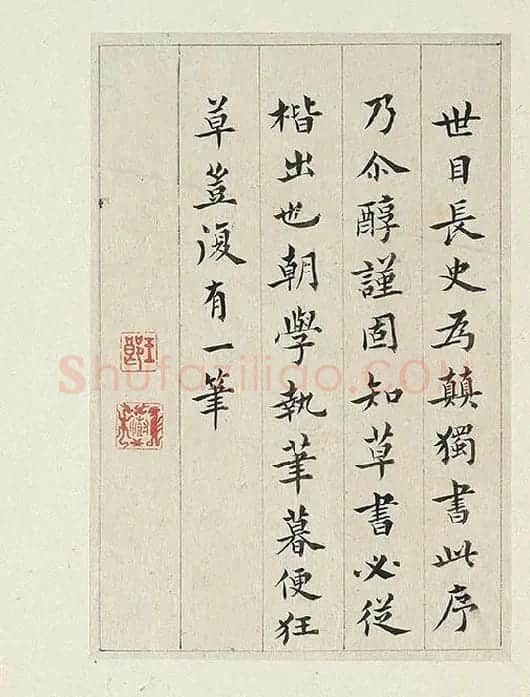 世目長史為顛獨書此序
乃尒醇謹固知草書必從
楷出也朝學執筆暮便狂
草豈復有一筆
Shufaziliao.COM